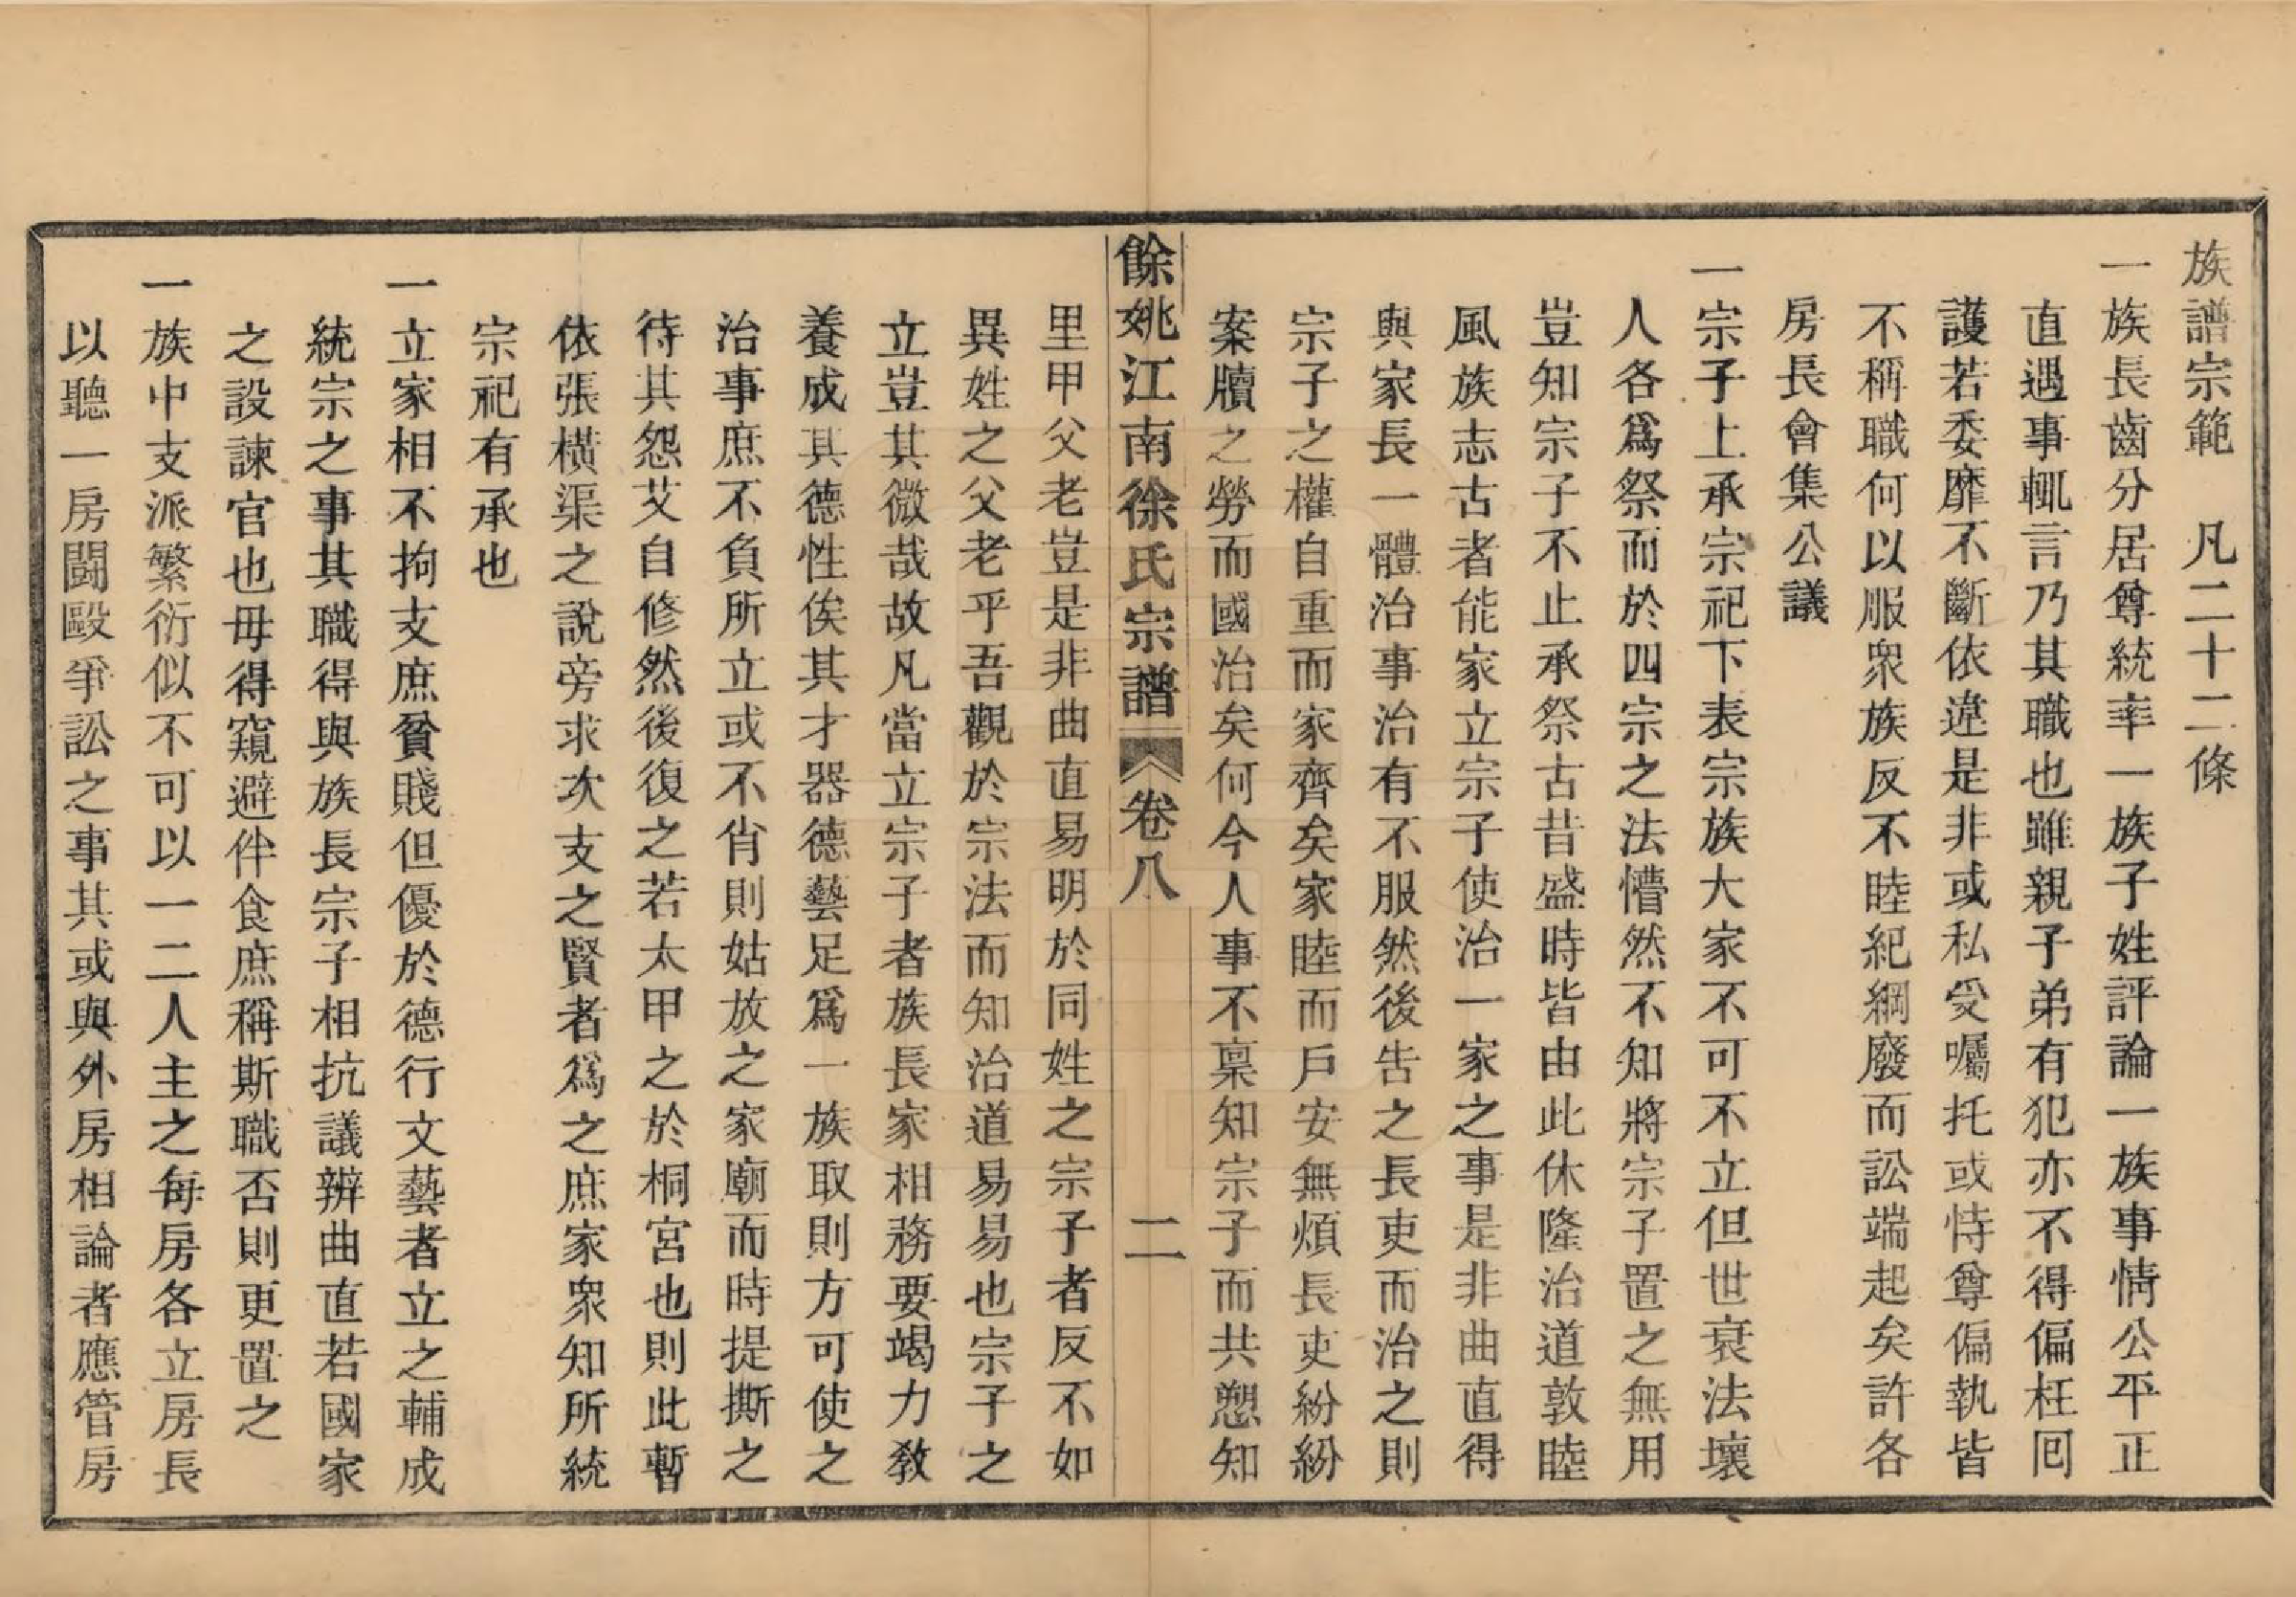 族譜宗範　凡二十二條
一族長齒分居尊統率一族子姓評論一族事情公平正
直遇事輒言乃其職也雖親子弟有犯亦不得偏枉囘
護若委靡不斷依違是非或私受囑托或恃尊偏執皆
不稱職何以服衆族反不睦紀綱廢而訟端起矣許各
房長會集公議
一宗子上承宗祀下表宗族大家不可不立但世衰法壞
人各爲祭而於四宗之法懵然不知將宗子置之無用
豈知宗子不止承祭古昔盛時皆由此休隆治道敦睦
風族志古者能家立宗子使治一家之事是非曲直得
與家長一體治事治有不服然後告之長吏而治之則
宗子之權自重而家齊矣家睦而戶安無煩長吏紛紛
案牘之勞而國治矣何今人事不稟知宗子而共愬知
餘姚江南徐氏宗譜　卷八　二
里甲父老豈是非曲直易明於同姓之宗子者反不如
異姓之父老乎吾觀於宗法而知治道易易也宗子之
立豈其微哉故凡當立宗子者族長家相務要竭力敎
養成其德性俟其才器德藝足爲一族取則方可使之
治事庶不負所立或不肖則姑放之家廟而時提撕之
待其怨艾自修然後復之若太甲之於桐宮也則此暫
依張橫渠之說旁求次支之賢者爲之庶家衆知所統
宗祀有承也
一立家相不拘支庶貧賤但優於德行文藝者立之輔成
統宗之事其職得與族長宗子相抗議辨曲直若國家
之設諫官也毋得窺避伴食庶稱斯職否則更置之
一族中支派繁衍似不可以一二人主之每房各立房長
以聽一房鬪毆爭訟之事其或與外房相論者應管房